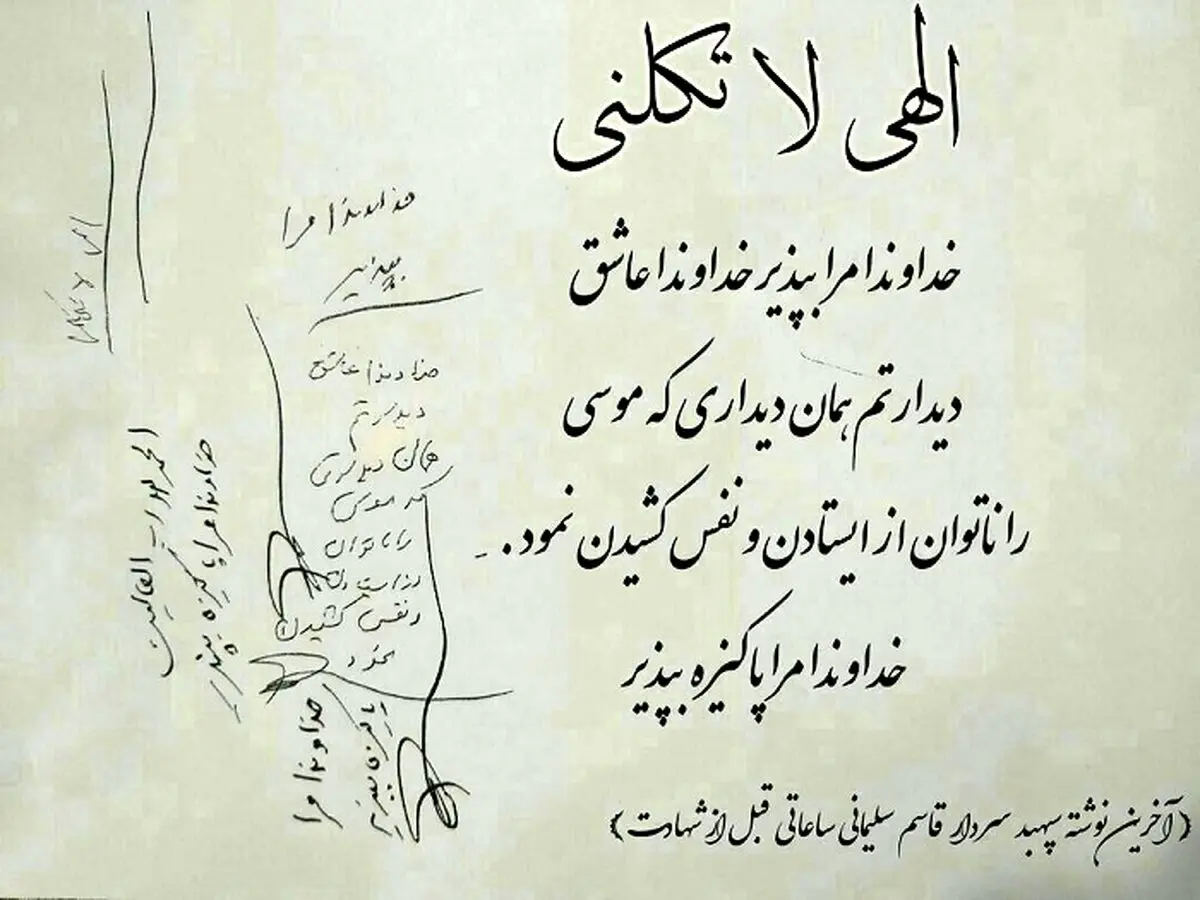 الهی لا تکلنی
خداوندا مرا بپذیر خداوندا عاشق
دیدارتم همان دیداری که موسی
را ناتوان از ایستادن و نفس کشیدن نمود.
خداوندا مرا پاکیزه بپذیر
(آخرین نوشته سپهبد سردار قاسم سلیمانی ساعاتی قبل از شهادت)
خداوندا مرا
بپذیر
خداوندا عاشق
دیدارتم
همان دیداری
که موسی
را ناتوان
از ایستادن
و نفس کشیدن
نمود
خداوندا مرا
پاکیزه بپذیر
خداوندا مرا پاکیزه بپذیر
الحمدلله رب العالمین
الهی لا تکلنی